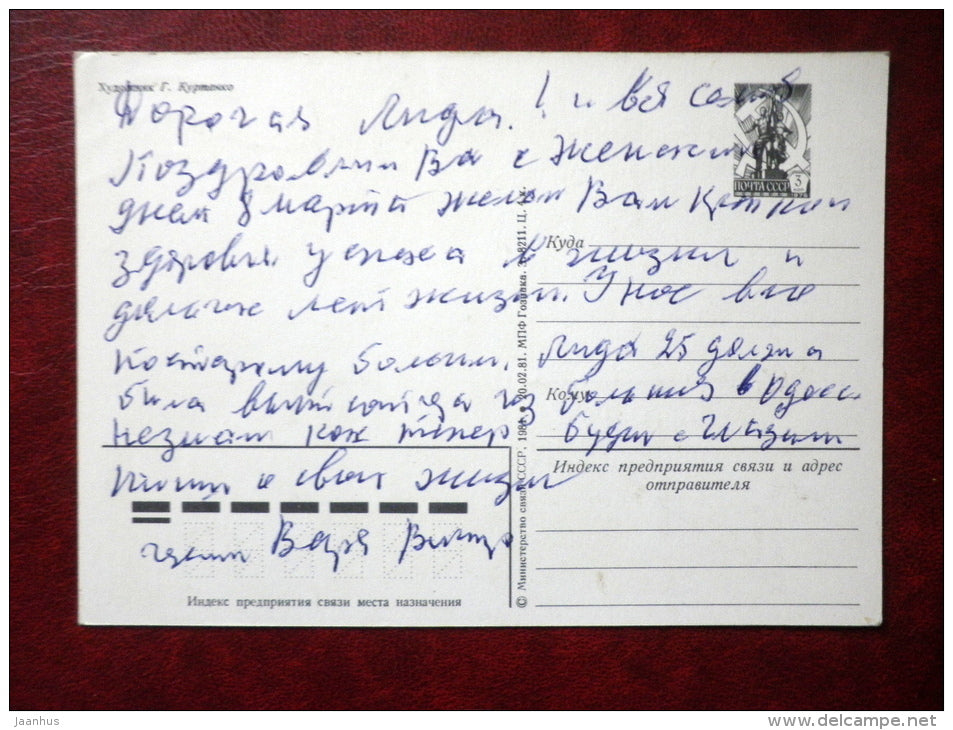 Художник Г. Куртенко
Дорогая Лида! и вся семья
Поздровляли Ва с женским
днем 8 марта желаю Вам крепкой
здоровья успеха в жизни и
долгих лет жизни. У нос все
постарому болеем. Лида 25 должна
была в больница в Одесс
незнаю как тепер будит с глазам
пиши о своей жизни
Варя Виктор
ПОЧТА СССР
3
1976
Куда
Кому
Индекс предприятия связи и адрес
отправителя
Индекс предприятия связи места назначения
© Министерство связи СССР, 20.02.81. МПФ Гознака.
Jaanhus
www.delcampe.net